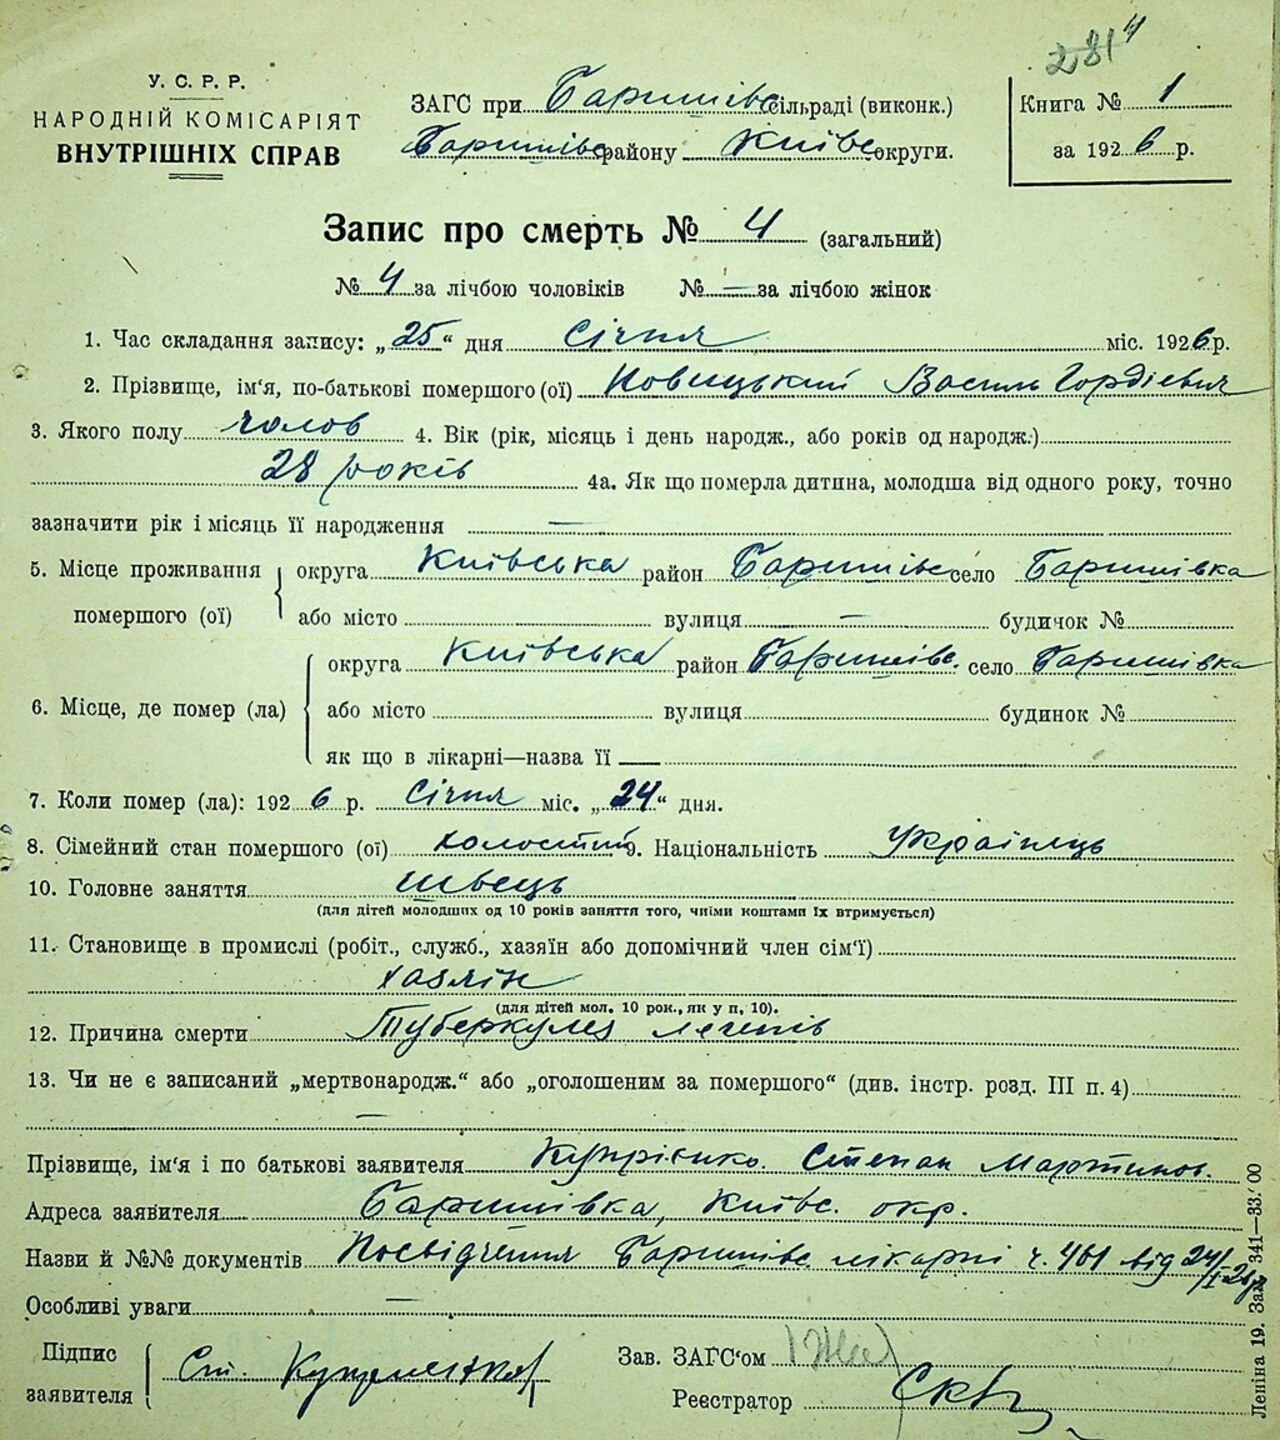 281 4
У. С. Р. Р.
НАРОДНІЙ КОМІСАРІЯТ
ВНУТРІШНІХ СПРАВ
ЗАГС при Баришівс сільраді (виконк.)
Баришівс району Київс округи.
Книга № 1
за 1926 р.
Запис про смерть № 4 (загальний)
№ 4 за лічбою чоловіків № — за лічбою жінок
1. Час складання запису: „25“ дня Січня міс. 1926 р.
2. Прізвище, ім‘я, по-батькові помершого (ої) Новицький Василь Гордієвич
3. Якого полу чолов 4. Вік (рік, місяць і день народж., або років од народж.)
28 років 4а. Як що померла дитина, молодша від одного року, точно
зазначити рік і місяць її народження —
5. Місце проживання помершого (ої) округа Київська район Баришівс село Баришівка
або місто вулиця — будинок №
6. Місце, де помер (ла) округа Київська район Баришівс. село Баришівка
або місто вулиця будинок №
як що в лікарні—назва її —
7. Коли помер (ла): 1926 р. Січня міс. „24“ дня.
8. Сімейний стан помершого (ої) холостий 9. Національність Українець
10. Головне заняття швець
(для дітей молодших од 10 років заняття того, чиїми коштами їх втримується)
11. Становище в промислі (робіт., служб., хазяїн або допомічний член сім‘ї)
хазяїн
(для дітей мол. 10 рок., як у п, 10).
12. Причина смерти Туберкульоз легенів
13. Чи не є записаний „мертвонародж.“ або „оголошеним за помершого“ (див. інстр. розд. III п. 4)
—
Прізвище, ім‘я і по батькові заявителя Купрієнко. Степан Мартинов.
Адреса заявителя Баришівка, Київс. окр.
Назви й №№ документів Посвідчення Баришівс. лікарні ч. 461 від 24/I-26р
Особливі уваги —
Підпис заявителя Ст.
Зав. ЗАГС‘ом
Реєстратор
Леніна 19. Зак. 341—33.